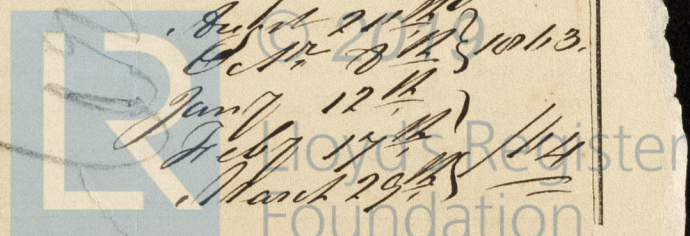 August 21th
Octr 8th } 1843.
Jany 12th
Feby 17th } /44
March 29th
© 2019
Lloyd's Register
Foundation
LR